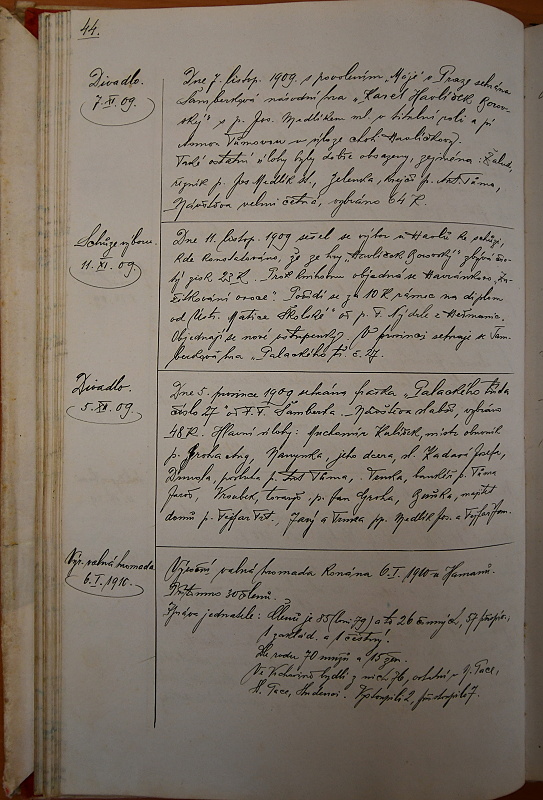 44.
Divadlo.
7. XI. 09.
Dne 7. listop. 1909 s povolením „Máje" v Praze sehrána
Šamberkova národní hra „Karel Havlíček Borov-
ský" s p. Jos. Medlíkem ml. v titulní roli a pí
Annou Tůmovou v úloze choti Havlíčkovy.
Také ostatní úlohy byly dobře obsazeny, zejména: Žalud,
řezník p. Jos Medlík st., Zelenka, krejčí p. Ant. Tůma,
Návštěva velmi četná, vybráno 64 K.
Schůze výboru.
11. XI. 09
Dne 11. listop. 1909 sešel se výbor u Havlů ke schůzi,
kde konstatováno, že ze hry „Havlíček Borovský" zbývá čis-
tý zisk 23 K. Prok knihovnu objedná se
ovoce: Pořídí se za 10 K rámec na diplom
od Ústř. Matice Školské od p. F. Nýdrle z Heřmanic.
Objednají se nové vstupenky. V prosinci sehraje se Šam-
berkova hra „Palackého tř. č. 27.
Divadlo.
5. XII. 09.
Dne 5. prosince 1909 sehrána fraška „Palackého třída
číslo 27" od F. F. Šamberka. Návštěva slabá, vybráno
48 K. Hlavní úlohy: Kubíček, mistr obuvník
p. Groha Aug, Nanynka, jeho dcera, sl. Zadová Josefa,
p. Ant Tůma, Tenka, bankéř p. Tůma
Jaroš, Vroubek, tovaryš p. Jan Groha, majitel
domů p. Fejfar Fr., Janý a Trnka pp. Medlík Jos. a Fejfar Jan.
Výr. valná hromada
6. I. 1910.
Výroční valná hromada konána 6. I. 1910 u Hamanů.
Přítomno 30 členů.
Zpráva jednatele: Členů je 85 (loni 79) a to 26 činných, 57 přispív.,
1 zaklád. a 1 čestný.
Dle rodu 70 mužů a 15 žen.
bydlí z nich 76, ostatní v
studenci. Vystoupilo 2, přistoupilo 7.